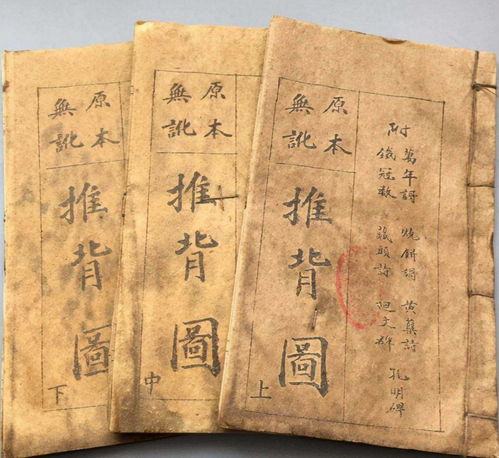 附
萬年詩 燒餅謌 黄蘖詩 孔明碑
鐵冠数 藏頭詩 廻文碑
原本
無訛
推背圖
上
原本
無訛
推背圖
中
原本
無訛
推背圖
下